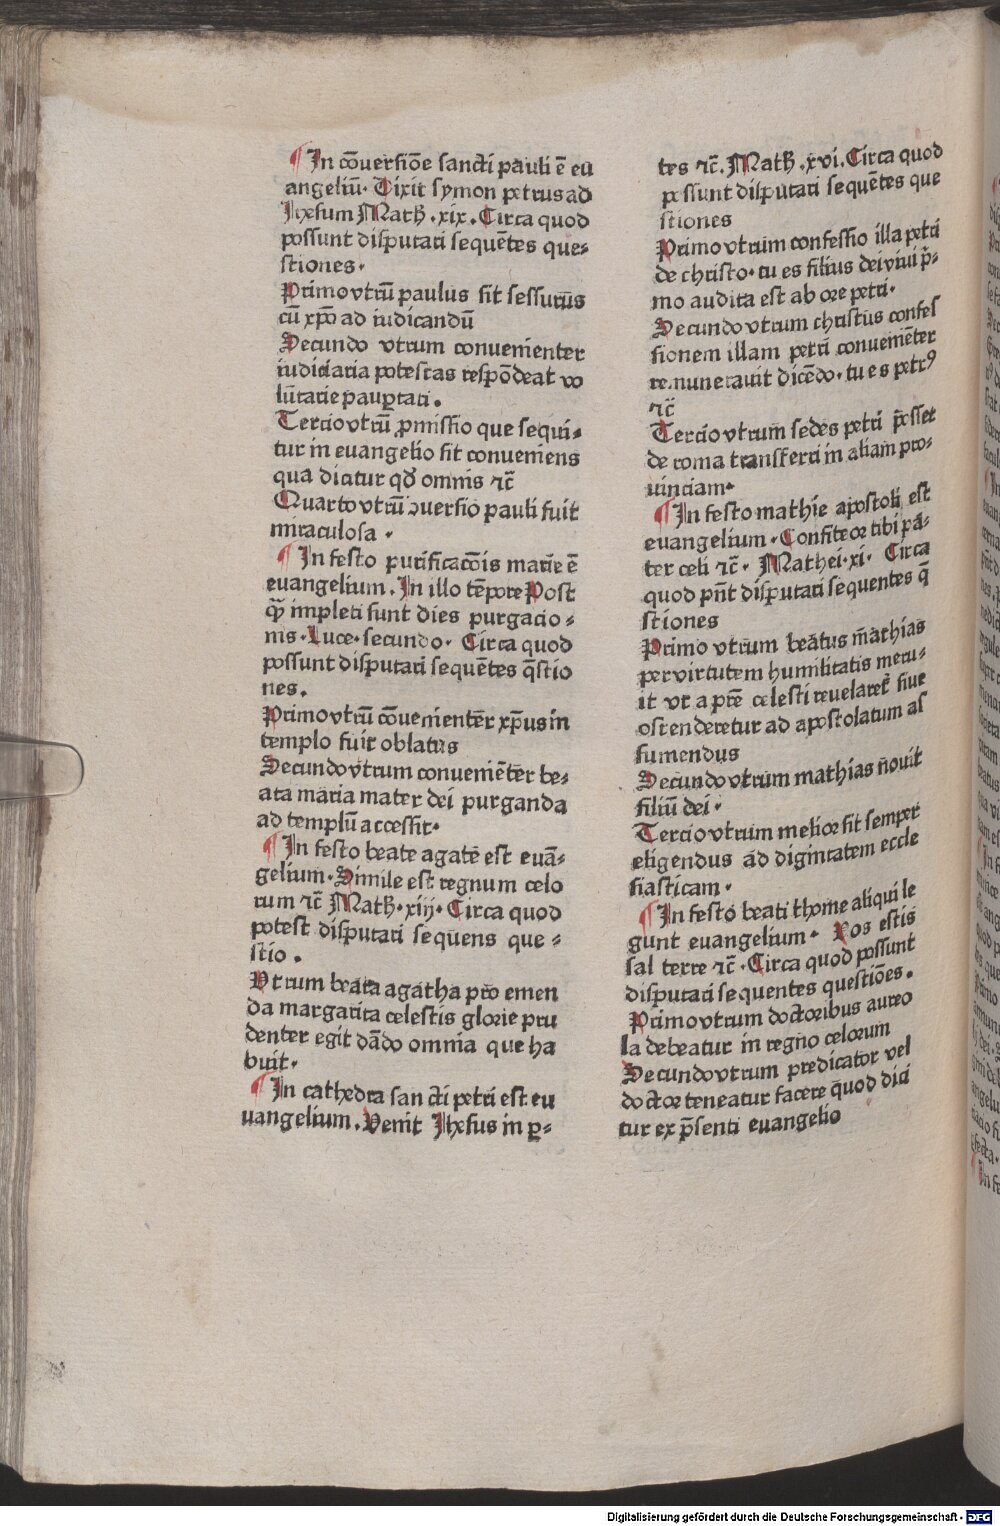 ¶ In cōuersiōe sancti pauli ē eu
angeliū. Dixit symon petrus ad
Jhesum Math̄ .xix. Circa quod
possunt disputari sequētes que-
stiones.
Primo vtrū paulus sit sessurus
cū xp̄o ad iudicandū
Secundo vtrum conuenienter
iudiciaria potestas respōdeat vo
lūtarie paup̱tati.
Tercio vtrū ꝓmissio que sequi-
tur in euangelio sit conueniens
qua dicitur qd̄ omnis ⁊c̄
Quarto vtrū ↄuersio pauli fuit
miraculosa.
¶ In festo purificacōis marie ē
euangelium. In illo tēpore Post
qȝ impleti sunt dies purgacio-
nis. Luce. secundo. Circa quod
possunt disputari sequētes q̄stio
nes.
Primo vtrū cōuenienter xp̄us in
templo fuit oblatus
Secundo vtrum conueniēter be-
ata maria mater dei purganda
ad templū accessit.
¶ In festo beate agate est euā-
gelium. Simile est regnum celo
rum ⁊c̄ Math̄. xiij. Circa quod
potest disputari sequens que-
stio.
Vtrum beata agatha pro emen
da margarita celestis glorie pru
denter egit dādo omnia que ha
buit.
¶ In cathedra sancti petri est eu
uangelium. Venit Jhesus in ꝑ-
tes ⁊c̄. Math̄ .xvi. Circa quod
possunt disputari sequētes que
stiones
Primo vtrum confessio illa petri
de christo. tu es filius dei viui p̄-
mo audita est ab ore petri.
Secundo vtrum christus confes
sionem illam petri conueniēter
remunerauit dicēdo. tu es petrꝰ
⁊c̄
Tercio vtrum sedes petri posset
de roma transferri in aliam pro-
uinciam.
¶ In festo mathie apostoli est
euangelium. Confiteor tibi pa-
ter celi ⁊c̄. Mathei. xi. Circa
quod pn̄t disputari sequentes q̄
stiones
Primo vtrum beatus mathias
per virtutem humilitatis meru-
it vt a pr̄e celesti reuelaret̄ siue
ostenderetur ad apostolatum as
sumendus
Secundo vtrum mathias nouit
filiū dei.
Tercio vtrum melior sit semper
eligendus ad dignitatem eccle
siasticam.
¶ In festo beati thome aliqui le
gunt euangelium. Vos estis
sal terre ⁊c̄. Circa quod possunt
disputari sequentes questiōes.
Primo vtrum doctoribus aureo
la debeatur in regno celorum
Secundo vtrum predicator vel
doctor teneatur facere quod dici
tur ex p̄senti euangelio
Digitalisierung gefördert durch die Deutsche Forschungsgemeinschaft - DFG